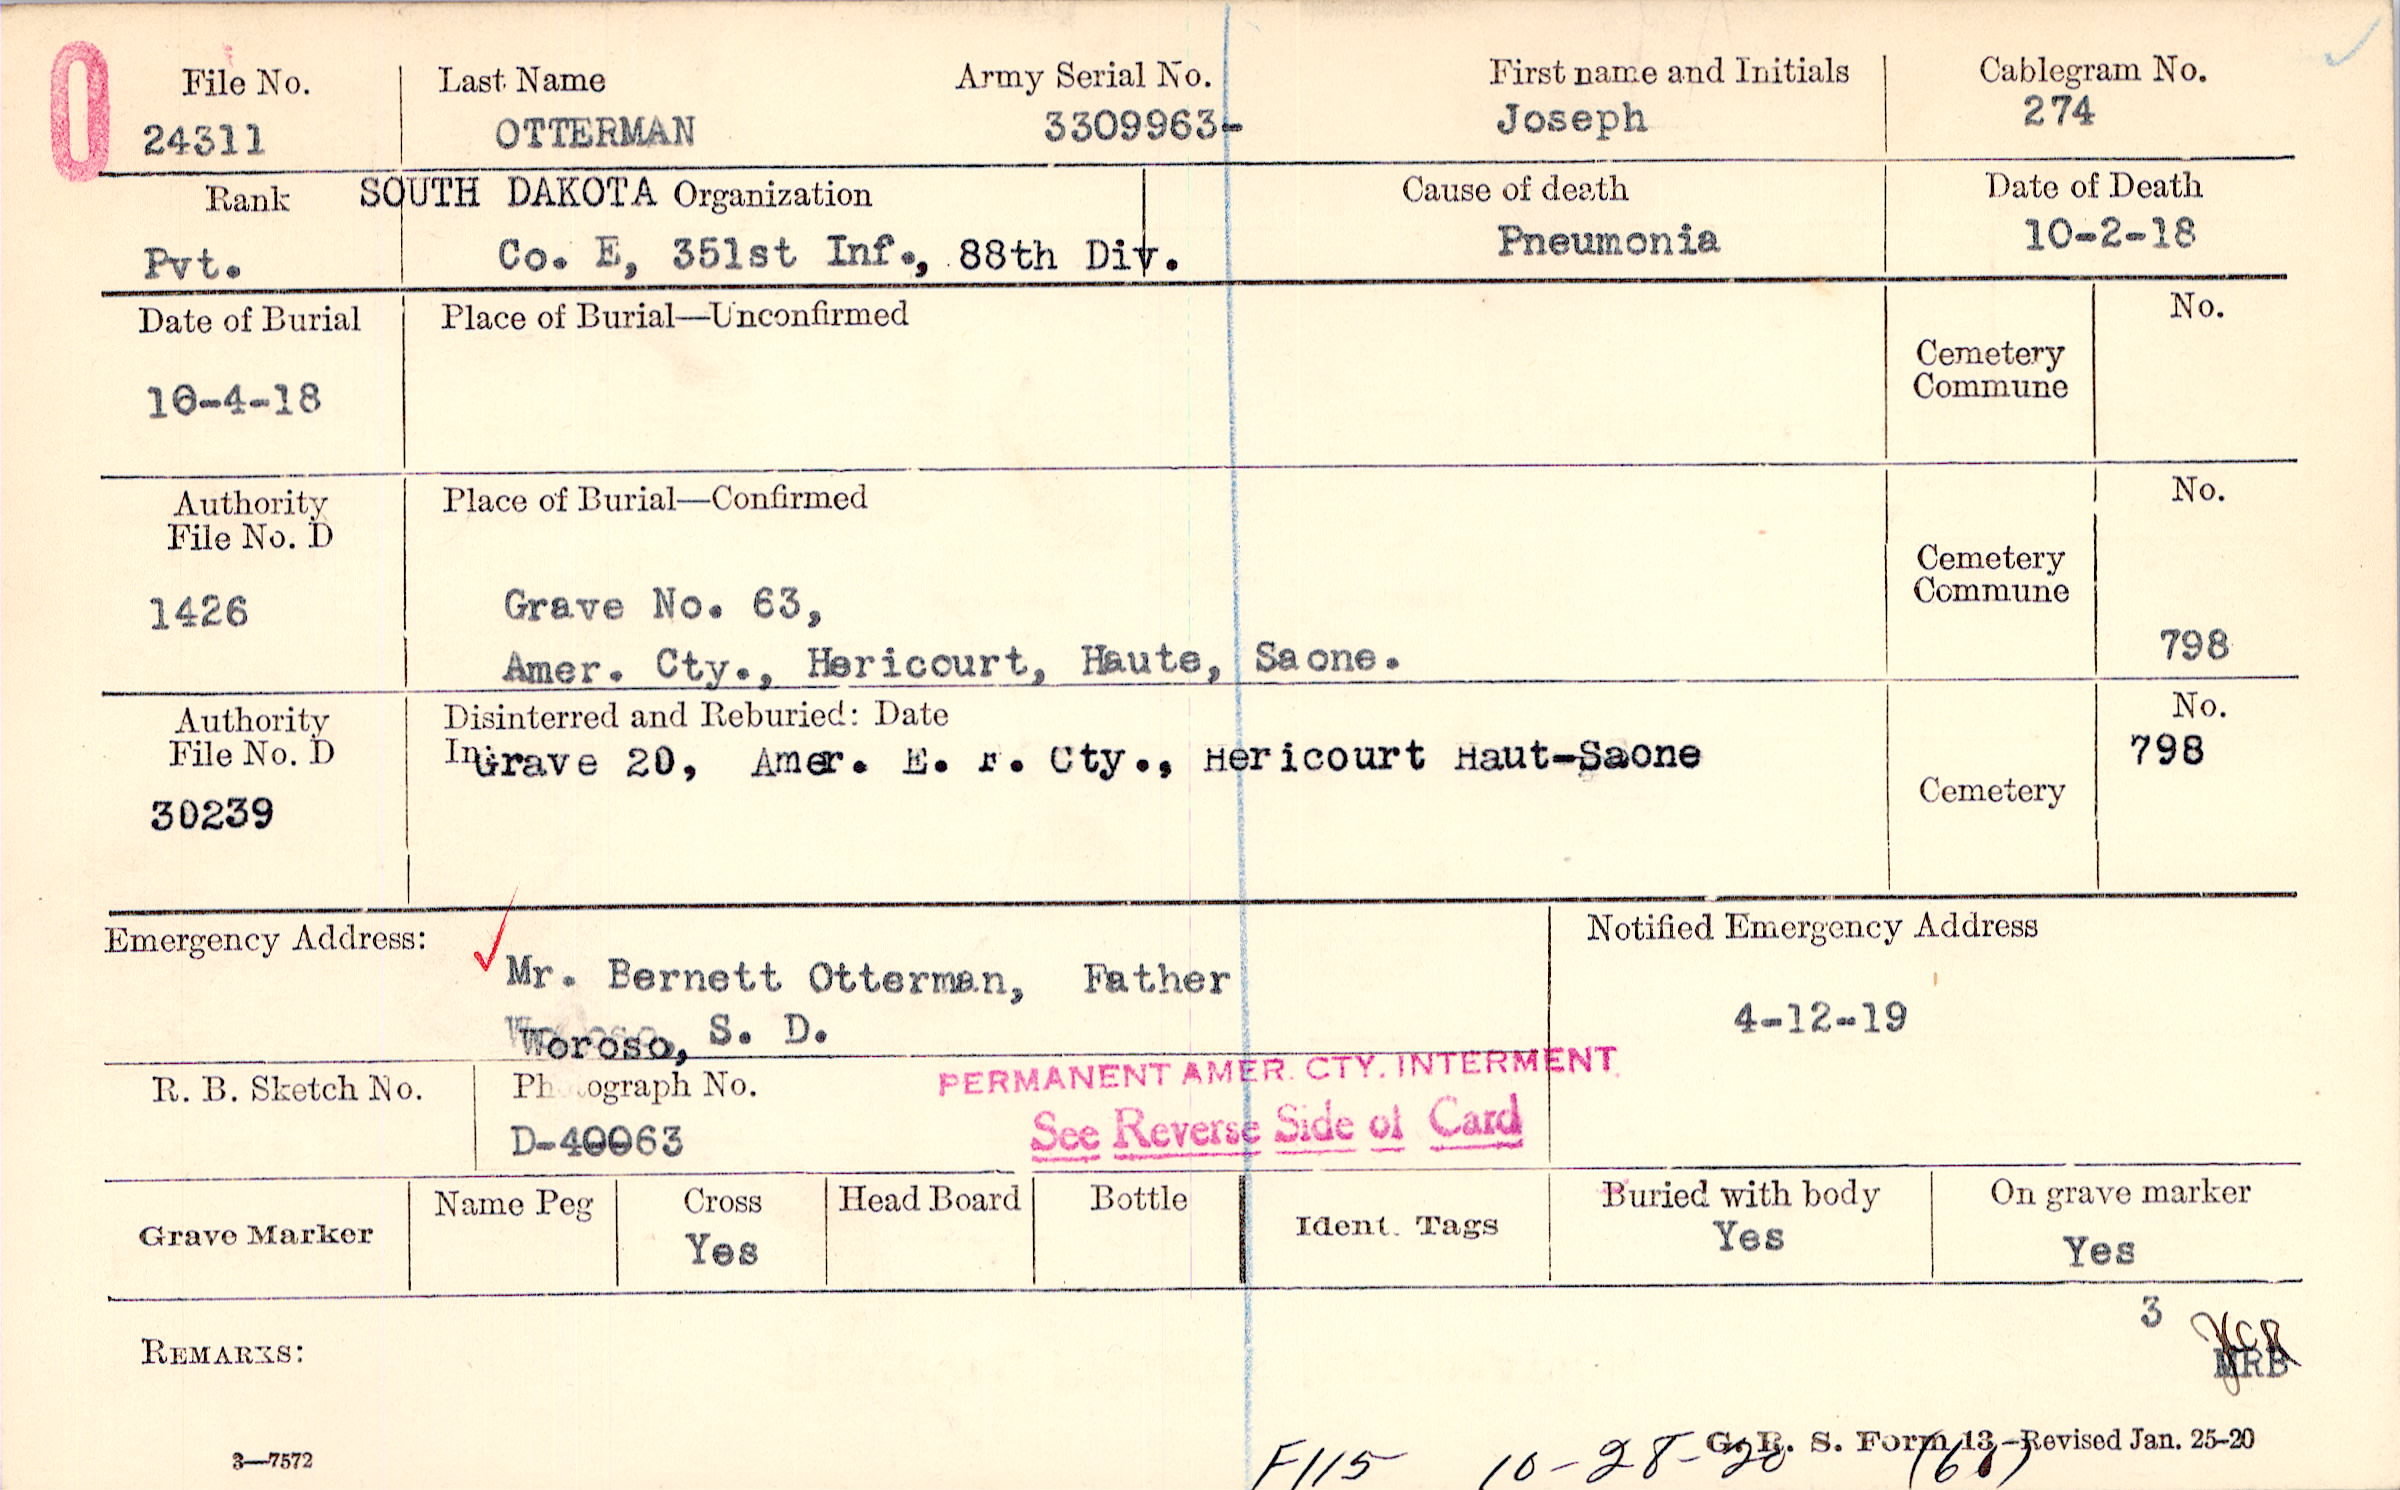 O
File No. Last Name Army Serial No. First name and Initials Cablegram No.
24311 OTTERMAN 3309963- Joseph 274
Rank SOUTH DAKOTA Organization Cause of death Date of Death
Pvt. Co. E, 351st Inf., 88th Div. Pneumonia 10-2-18
Date of Burial Place of Burial—Unconfirmed No.
Cemetery
Commune
10-4-18
Authority Place of Burial—Confirmed No.
File No. D
Cemetery
Commune
1426 Grave No. 63,
Amer. Cty., Hericourt, Haute, Saone. 798
Authority Disinterred and Reburied: Date No.
File No. D In Grave 20, Amer. E. F. Cty., Hericourt Haut-Saone 798
Cemetery
30239
Emergency Address: Notified Emergency Address
Mr. Bernett Otterman, Father
Woroso, S. D. 4-12-19
PERMANENT AMER. CTY. INTERMENT
R. B. Sketch No. Photograph No.
See Reverse Side of Card
D-40063
Grave Marker Name Peg Cross Head Board Bottle Ident. Tags Buried with body On grave marker
Yes Yes Yes
3
REMARKS:
MRB
3—7572 G. R. S. Form 13—Revised Jan. 25-20
F115 10-28-20